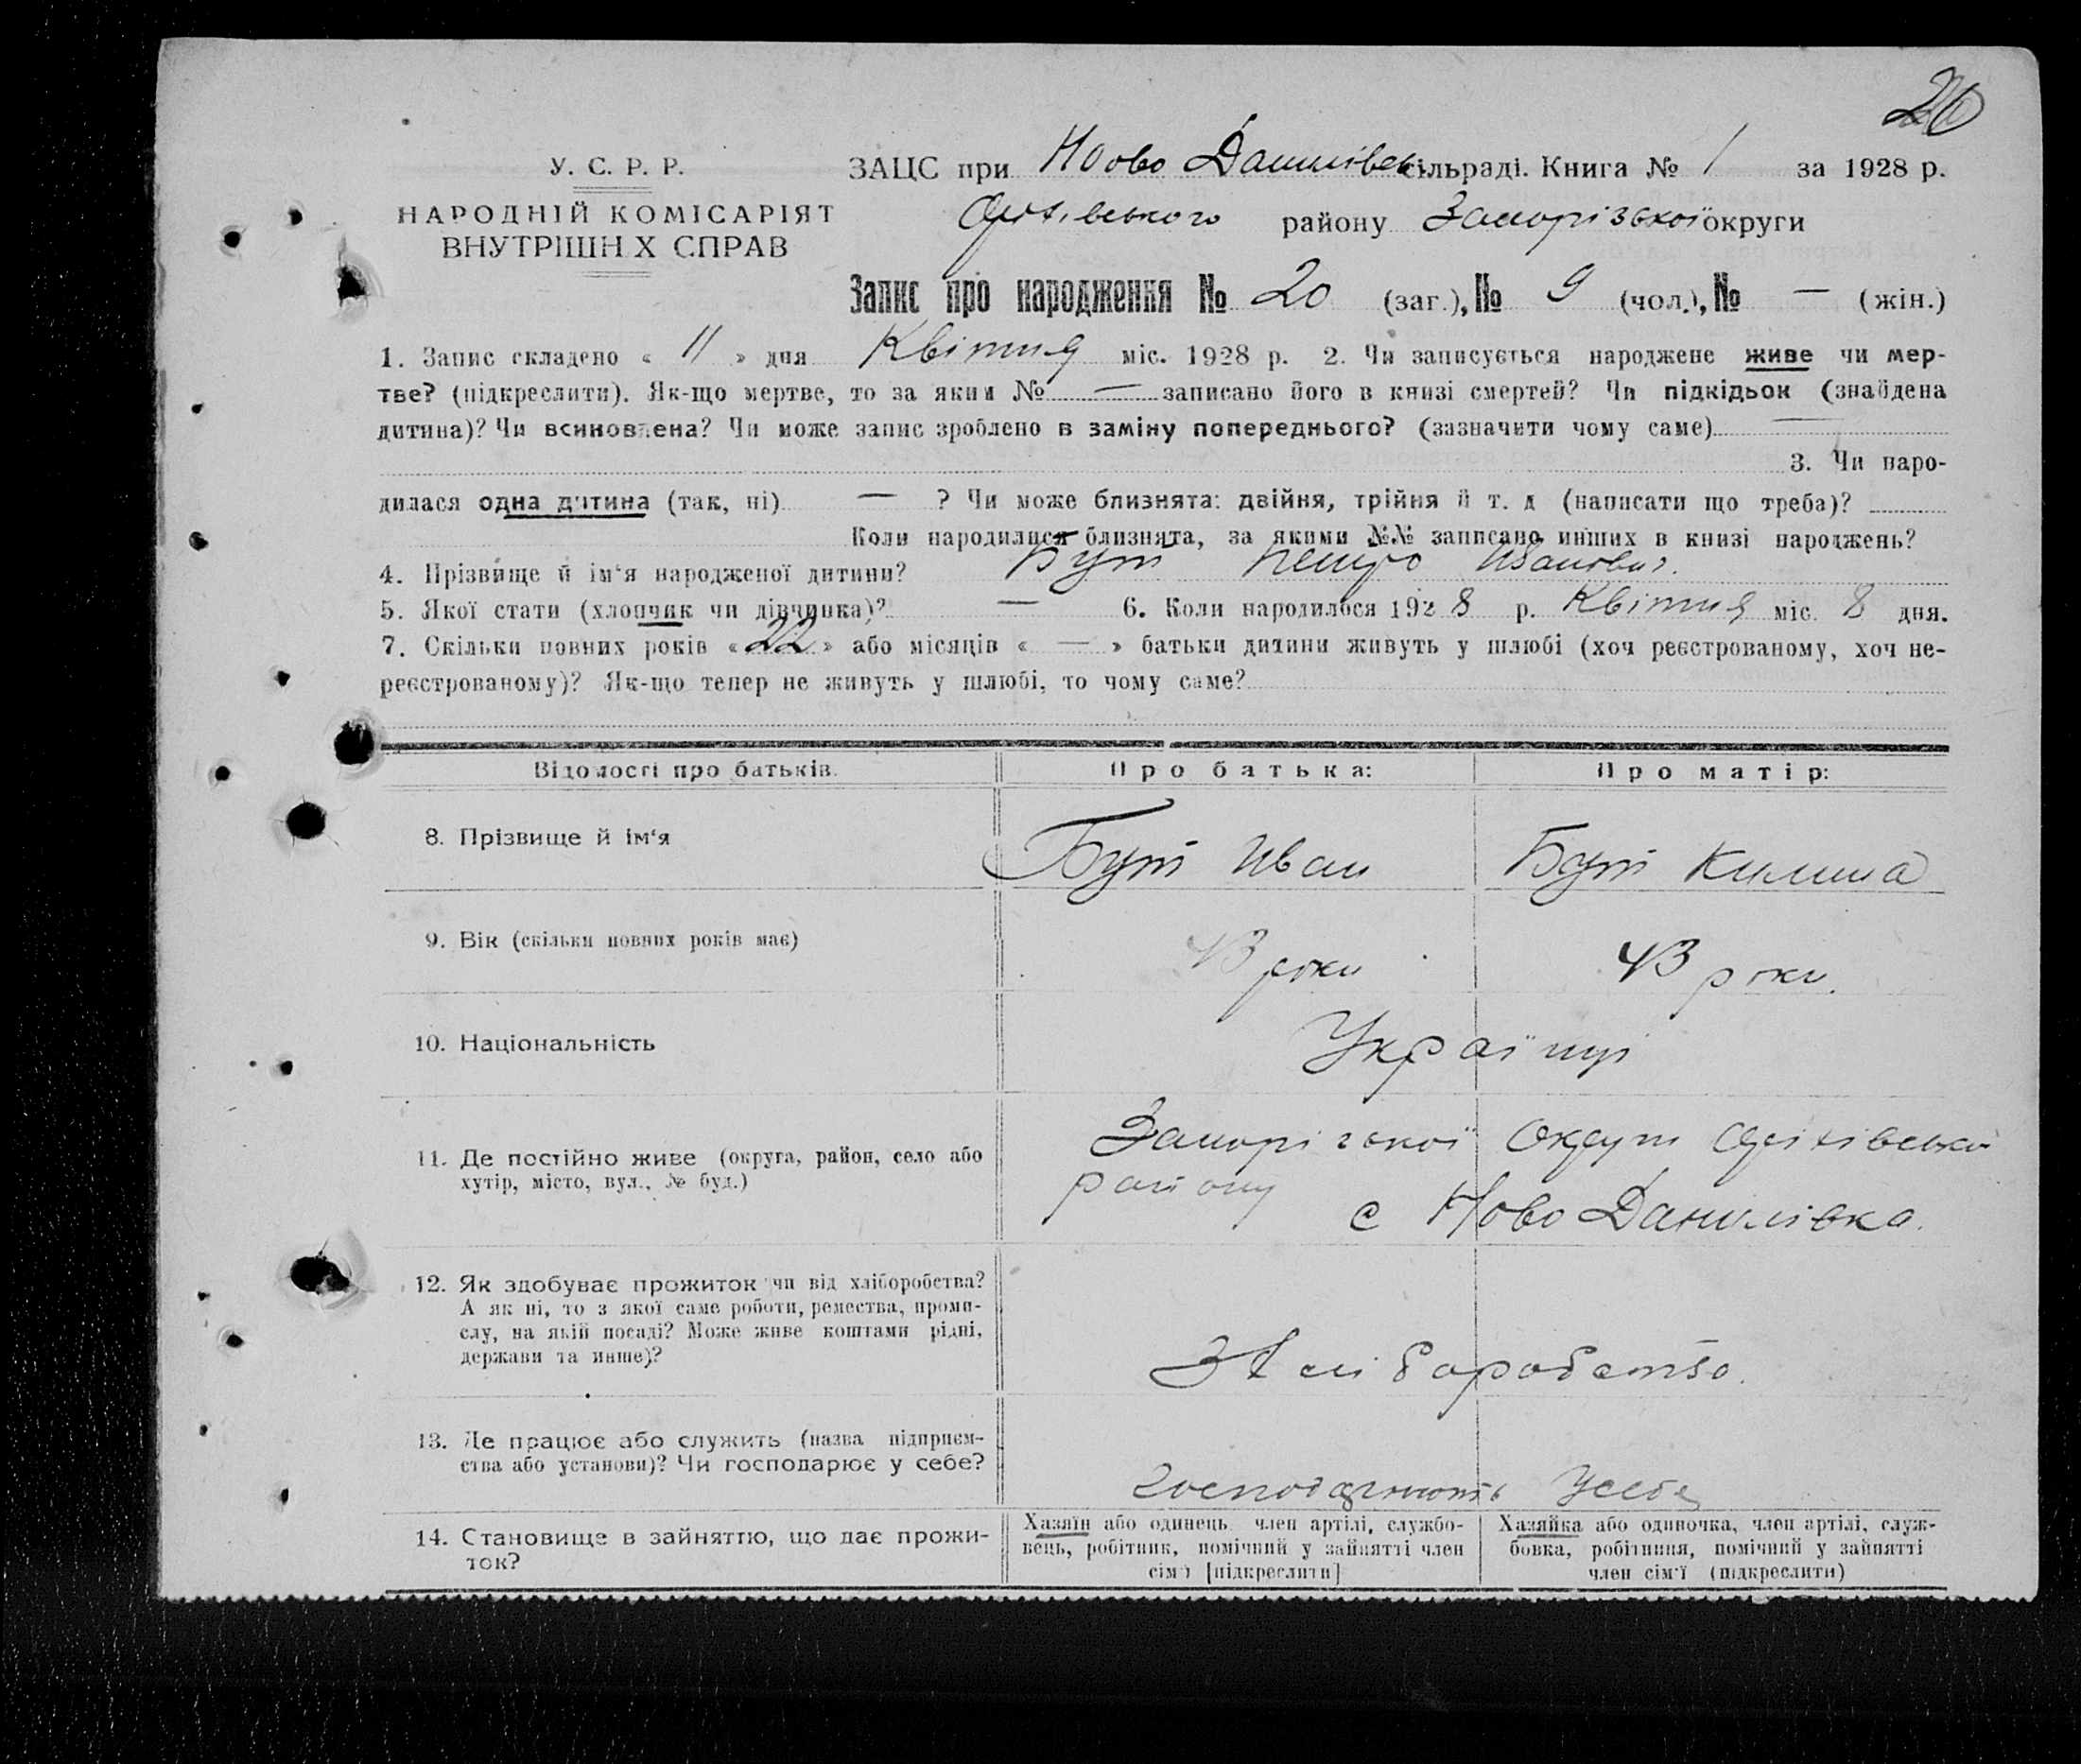 26
У. С. Р. Р.
НАРОДНІЙ КОМІСАРІЯТ
ВНУТРІШН Х СПРАВ
ЗАЦС при Ново Данилівськ сільраді. Книга № 1 за 1928 р.
Оріхівського району Запорізької округи
Запис про народження № 20 (заг.), № 9 (чол.), № — (жін.)
1. Запис складено « 11 » дня Квітня міс. 1928 р. 2. Чи записується народжене живе чи мер-
тве? (підкреслити). Як-що мертве, то за яким № — записано його в книзі смертей? Чи підкідьок (знайдена
дитина)? Чи всиновлена? Чи може запис зроблено в заміну попереднього? (зазначити чому саме) —
3. Чи наро-
дилася одна дитина (так, ні) — ? Чи може близнята: двійня, трійня й т. д (написати що треба)?
Коли народилися близнята, за якими №№ записано инших в книзі народжень?
4. Прізвище й ім‘я народженої дитини? Бут Петро Иванович.
5. Якої стати (хлопчик чи дівчинка)? — 6. Коли народилося 1928 р. Квітня міс. 8 дня.
7. Скільки повних років « 22 » або місяців « — » батьки дитини живуть у шлюбі (хоч реєстрованому, хоч не-
реєстрованому)? Як-що тепер не живуть у шлюбі, то чому саме?
Відомості про батьків. Про батька: Про матір:
8. Прізвище й ім‘я Бут Иван Бут Килина
9. Вік (скільки повних років має) 43 роки 43 роки.
10. Національність Українці
11. Де постійно живе (округа, район, село або
хутір, місто, вул., № буд.)
Запорізської Округи Оріхівсько
району с Ново Данилівка.
12. Як здобуває прожиток чи від хліборобства?
А як ні, то з якої саме роботи, ремества, проми-
слу, на якій посаді? Може живе коштами рідні,
держави та инше)?
Хліборобство.
13. Де працює або служить (назва підприєм-
ства або установи)? Чи господарює у себе?
Господарюють Усебе
14. Становище в зайняттю, що дає прожи-
ток?
Хазяїн або одинець член артілі, службо-
вець, робітник, помічний у зайнятті член
сім'ї [підкреслити]
Хазяйка або одиночка, член артілі, служ-
бовка, робітниця, помічний у зайнятті
член сім'ї (підкреслити)